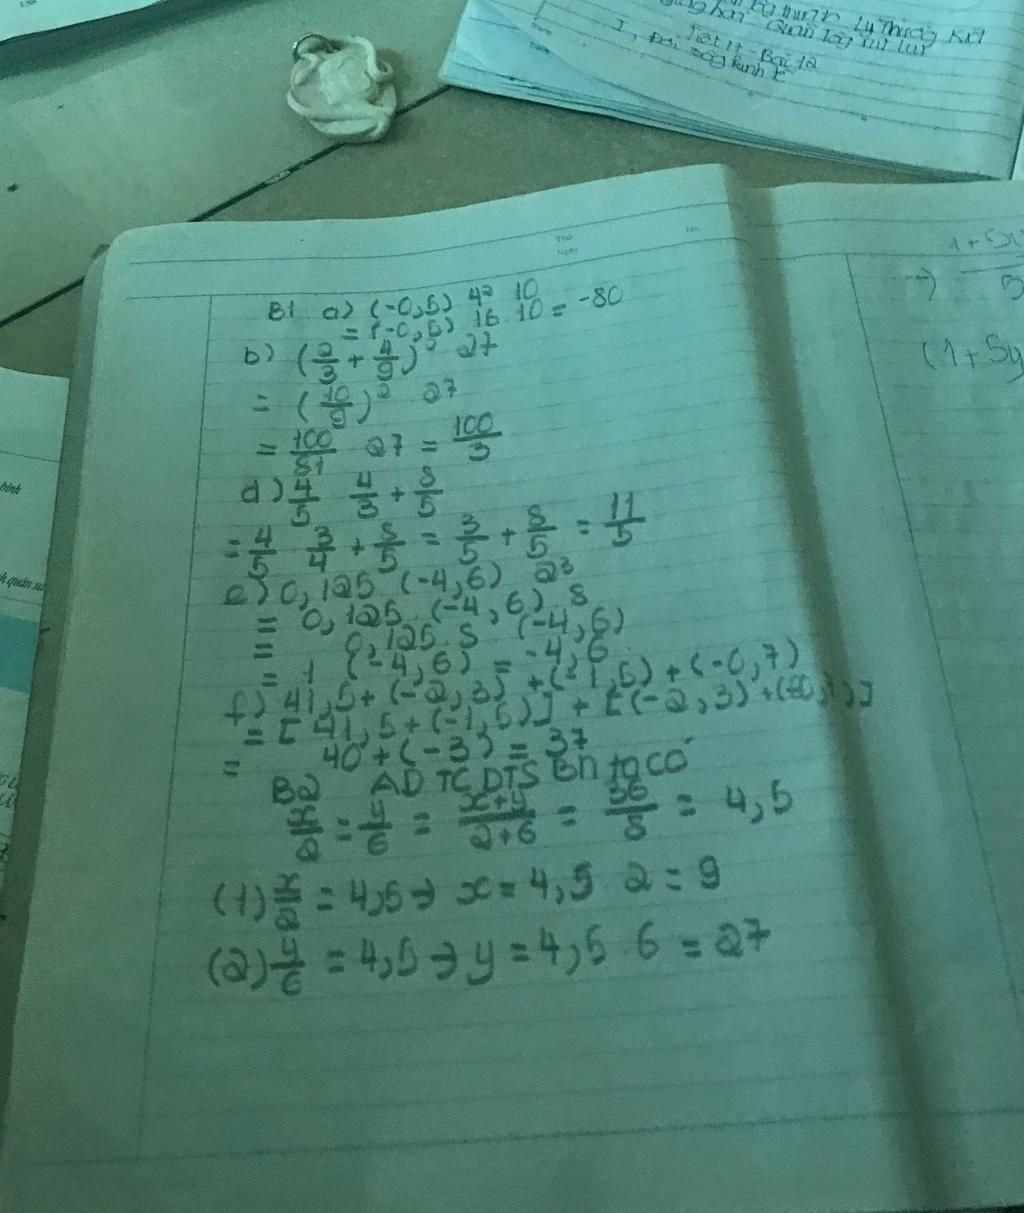 Lý Thường Kiệt
Tiết 17 - Bài 12
Thứ
Ngày
B1 a) (-0,5) 4² 10
= (-0,5) 16 10 = -80
b) (2/3 + 4/9)² 27
= (10/9)² 27
= 100/81 27 = 100/3
d) 4/5 4/3 + 8/5
= 4/5 3/4 + 8/5 = 3/5 + 8/5 = 11/5
e) 0,125 (-4,6) 2³
= 0,125 (-4,6) 8
= 0,125 8 (-4,6)
= 1 (-4,6) = -4,6
f) 41,5 + (-2,3) + (-1,5) + (-0,7)
= [41,5 + (-1,5)] + [(-2,3) +
= 40 + (-3) = 37
B2 AD TCDTSBN ta có
x/2 = y/6 = x+y/2+6 = 36/8 = 4,5
(1) x/2 = 4,5 → x = 4,5 2 = 9
(2) y/6 = 4,5 → y = 4,5 . 6 = 27
(1+5y